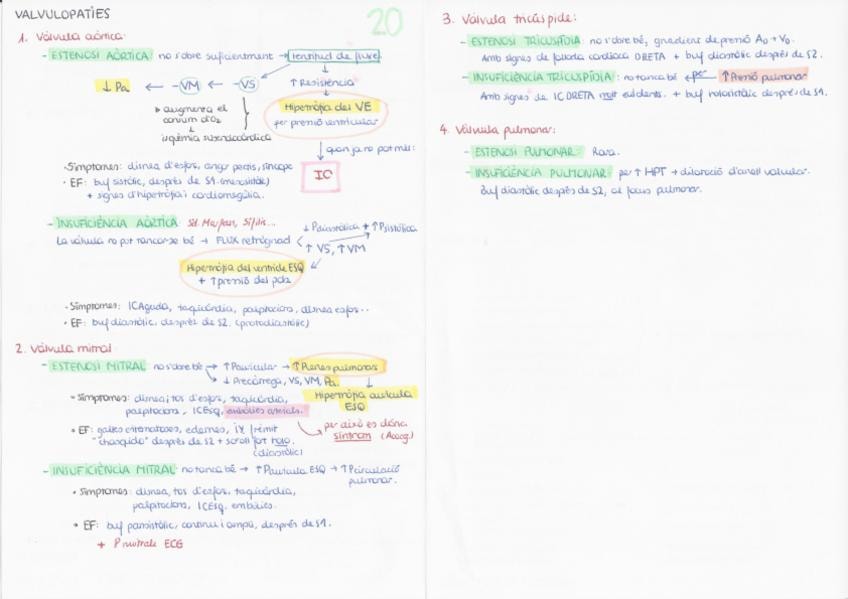 VALVULOPATIES
20
1. Vàlvula aòrtica:
- ESTENOSI AÒRTICA: no s'obre suficientment → lentitud de flux
↓ Pa ← ↓VM ← ↓VS
↑ Resistència
augmenta el consum d'O2
↓
isquèmia subendocàrdica
Hipertròfia del VE
per pressió ventricular
↓ quan ja no pot més:
IC
· Símptomes: disnea d'esforç, angor pectis, síncope
· EF: buf sistòlic, després de S1. (mesosistòlic)
+ signes d'hipertròfia i cardiomegàlia.
- INSUFICIÈNCIA AÒRTICA Sd. Marfan, Sífilis...
La vàlvula no pot tancar-se bé → FLUX retrògrad
↓ Pdiastòlica + ↑ Psistòlica
↑ VS, ↑ VM
Hipertròfia del ventricle ESQ
+ ↑ pressió del pols
· Símptomes: IC Aguda, taquicàrdia, palpitacions, disnea esforç..
· EF: buf diastòlic, després de S2. (protodiastòlic)
2. Vàlvula mitral:
- ESTENOSI MITRAL: no s'obre bé → ↑ Pauricular → ↑ Pvenes pulmonars
↓ Precàrrega, VS, VM, Pa.
Hipertròfia aurícula ESQ
· Símptomes: disnea i tos d'esforç, taquicàrdia,
palpitacions, IC Esq, embòlies arterials.
per això es dóna
sintrom (Acoag.)
· EF: galtes eritematoses, edemes, IY,
"chasquido" després de S2 + soroll fort
(diastòlic)
- INSUFICIÈNCIA MITRAL: no tanca bé → ↑ Paurícula ESQ → ↑ Pcirculació pulmonar.
· Símptomes: disnea, tos d'esforç, taquicàrdia,
palpitacions, IC Esq, embòlies.
· EF: buf pansistòlic, continu i ampli, després de S1.
+ P mitrale ECG
3. Vàlvula tricúspide:
- ESTENOSI TRICUSPÍDIA: no s'obre bé, gradient de pressió AD → VD.
Amb signes de fallada cardíaca DRETA + buf diastòlic després de S2.
- INSUFICIÈNCIA TRICUSPÍDIA: no tanca bé ← per ↑ Pressió pulmonar
Amb signes de IC DRETA molt evidents. + buf holosistòlic després de S1.
4. Vàlvula pulmonar:
- ESTENOSI PULMONAR: Rara.
- INSUFICIÈNCIA PULMONAR: per ↑ HPT → dilatació d'anell valvular.
Buf diastòlic després de S2, al focus pulmonar.